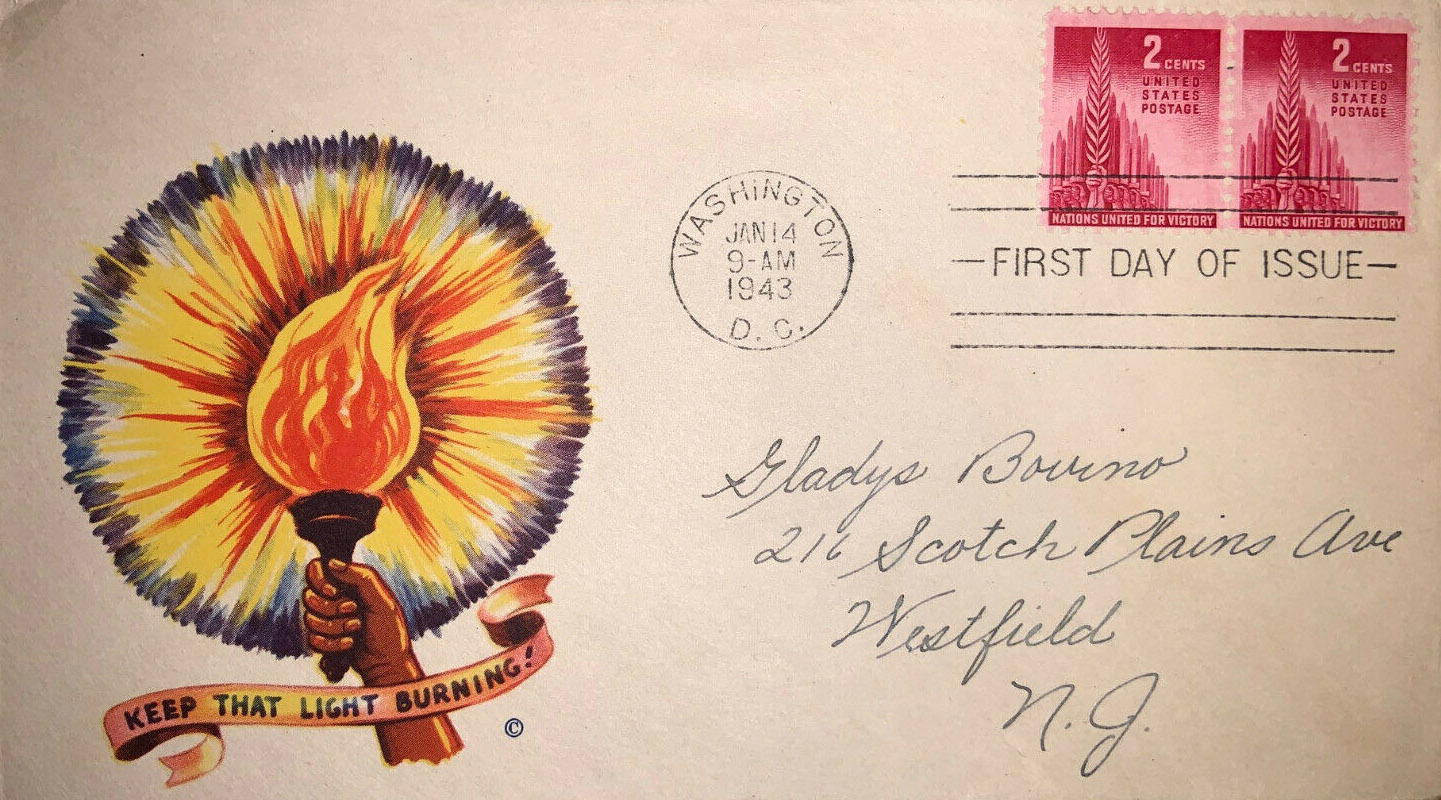 2 CENTS
UNITED
STATES
POSTAGE
NATIONS UNITED FOR VICTORY
2 CENTS
UNITED
STATES
POSTAGE
NATIONS UNITED FOR VICTORY
WASHINGTON
JAN 14
9-AM
1943
D. C.
—FIRST DAY OF ISSUE—
Gladys Bovino
216 Scotch Plains Ave
Westfield
N. J.
KEEP THAT LIGHT BURNING!
©